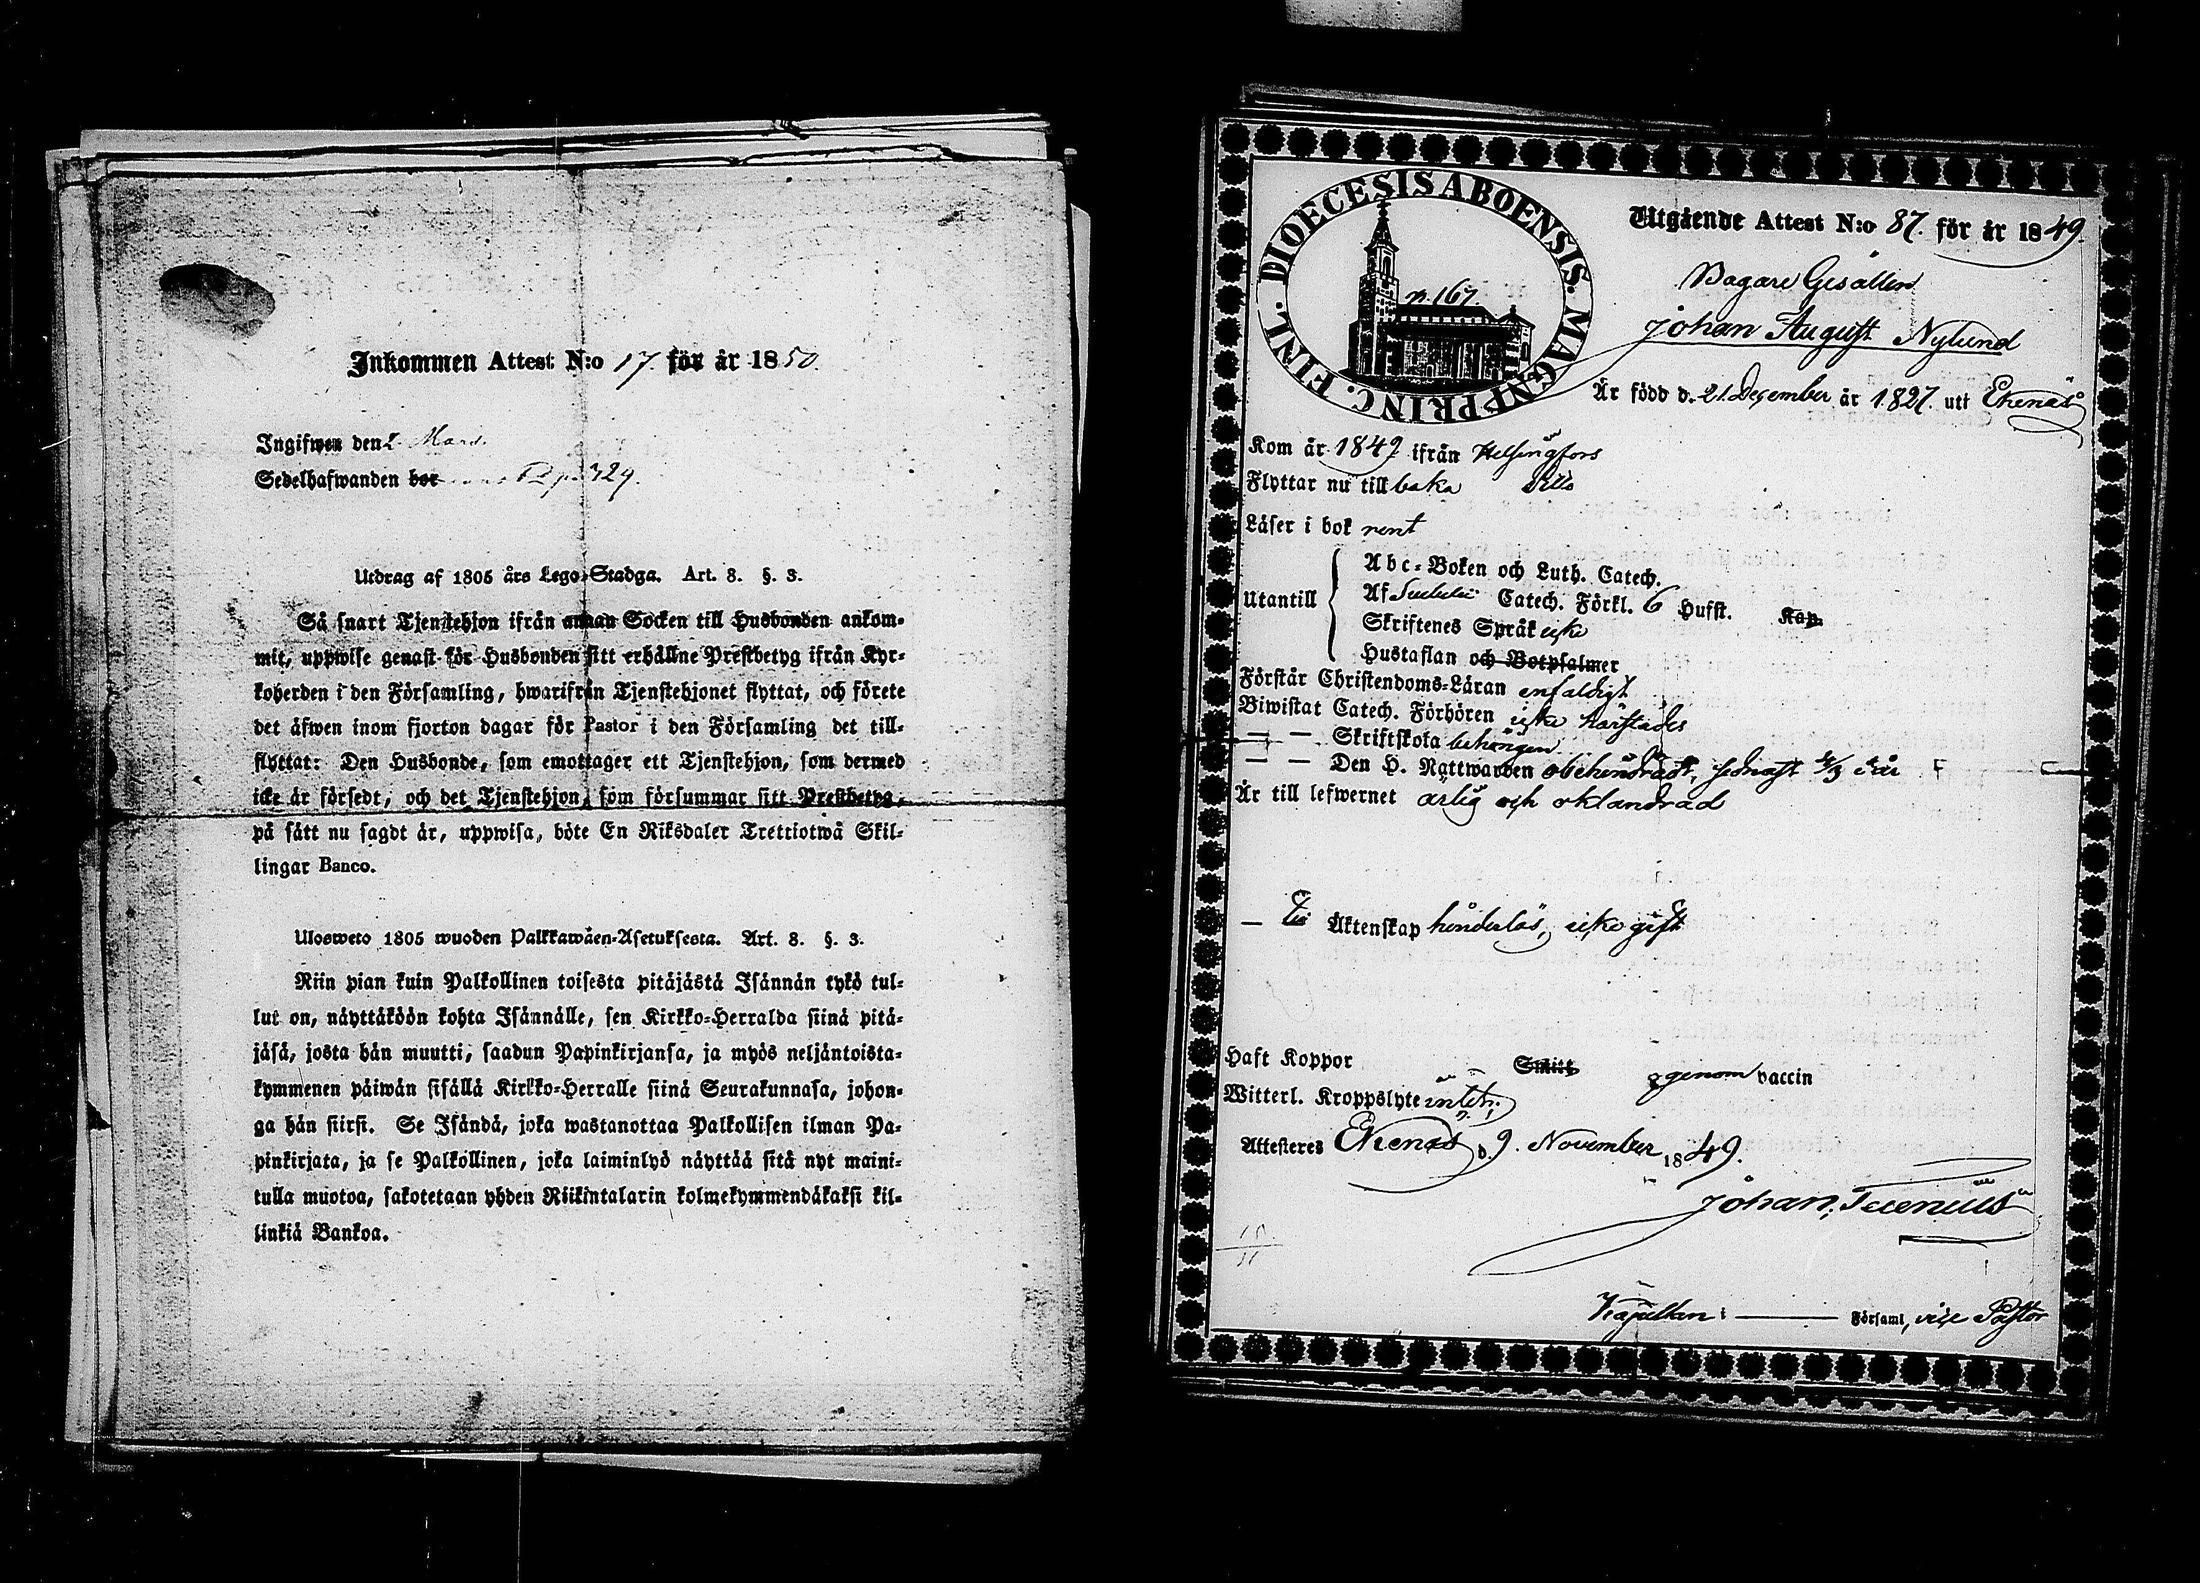 Inkommen Attest N:o 17. för år 1850.
Ingifwen den 2 Mars.
Sedelhafwanden bor p. 429.
Utdrag af 1805 års Lego-Stadga. Art. 8. §. 3.
Så snart Tjenstehjon ifrån annan Socken till Husbonden ankom-
mit, uppwise genast för Husbonden sitt erhållne Prestbetyg ifrån Kyr-
koherden i den Församling, hwarifrån Tjenstehjonet flyttat, och förete
det äfwen inom fjorton dagar för Pastor i den Församling det till-
flyttat: Den Husbonde, som emottager ett Tjenstehjon, som dermed
icke är försedt, och det Tjenstehjon, som försummar sitt Prestbetyg,
på sätt nu sagdt är, uppwisa, böte En Riksdaler Trettiotwå Skil-
lingar Banco.
Ulosweto 1805 wuoden Palkkawäen-Asetuksesta. Art. 8. §. 3.
Niin pian kuin Palkollinen toisesta pitäjästä Isännän tykö tul-
lut on, näyttäköön kohta Isännälle, sen Kirkko-Herralda siinä pitä-
jäsä, josta hän muutti, saadun Papinkirjansa, ja myös neljäntoista-
kymmenen päiwän sisällä Kirkko-Herralle siinä Seurakunnasa, johon-
ga hän siirsi. Se Isändä, joka wastanottaa Palkollisen ilman Pa-
pinkirjata, ja se Palkollinen, joka laiminlyö näyttää sitä nyt maini-
tulla muotoa, sakotetaan yhden Riikintalarin kolmekymmendäkaksi kil-
linkiä Bankoa.
DIOECESIS ABOENSIS. MAGN. PRINC. FINL.
p. 167.
Utgående Attest N:o 87. för år 1849.
Bagare Gesällen
Johan August Nylund
Är född d. 21 December år 1827. uti Ekenäs
Kom år 1849 ifrån Helsingfors
Flyttar nu till baka dito
Läser i bok rent
Utantill
Abc-Boken och Luth. Catech.
Af Catech. Förkl. 6 Hufst. Kap.
Skriftenes Språk icke
Hustaflan och Botpsalmer
Förstår Christendoms-Läran enfaldigt
Biwistat Catech. Förhören icke härstädes
— — Skriftskola behörigen
— — Den H. Nattwarden obehindradt, sednast i år
Är till lefwernet ärlig och oklandrad
— Till Äktenskap hinderlös, icke gift
Haft Koppor Smitt genom vaccin
Witterl. Kroppslyte intet.
Attesteres Ekenäs d. 9. November 1849.
Johan
Kapellan i ——— Församl, vice Pastor